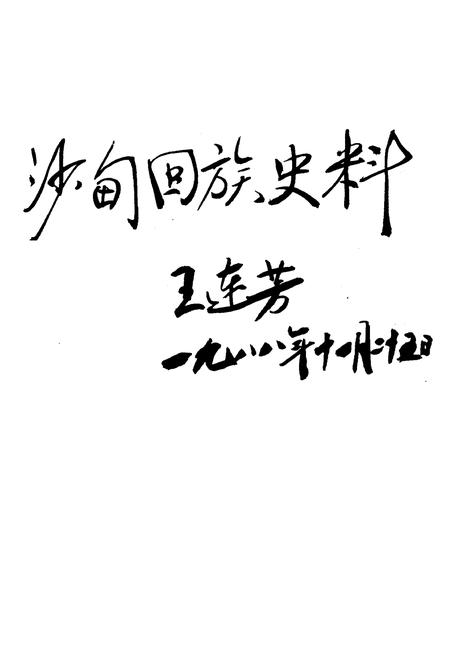 沙甸回族史料
王连芳
一九八八年十一月二十五日